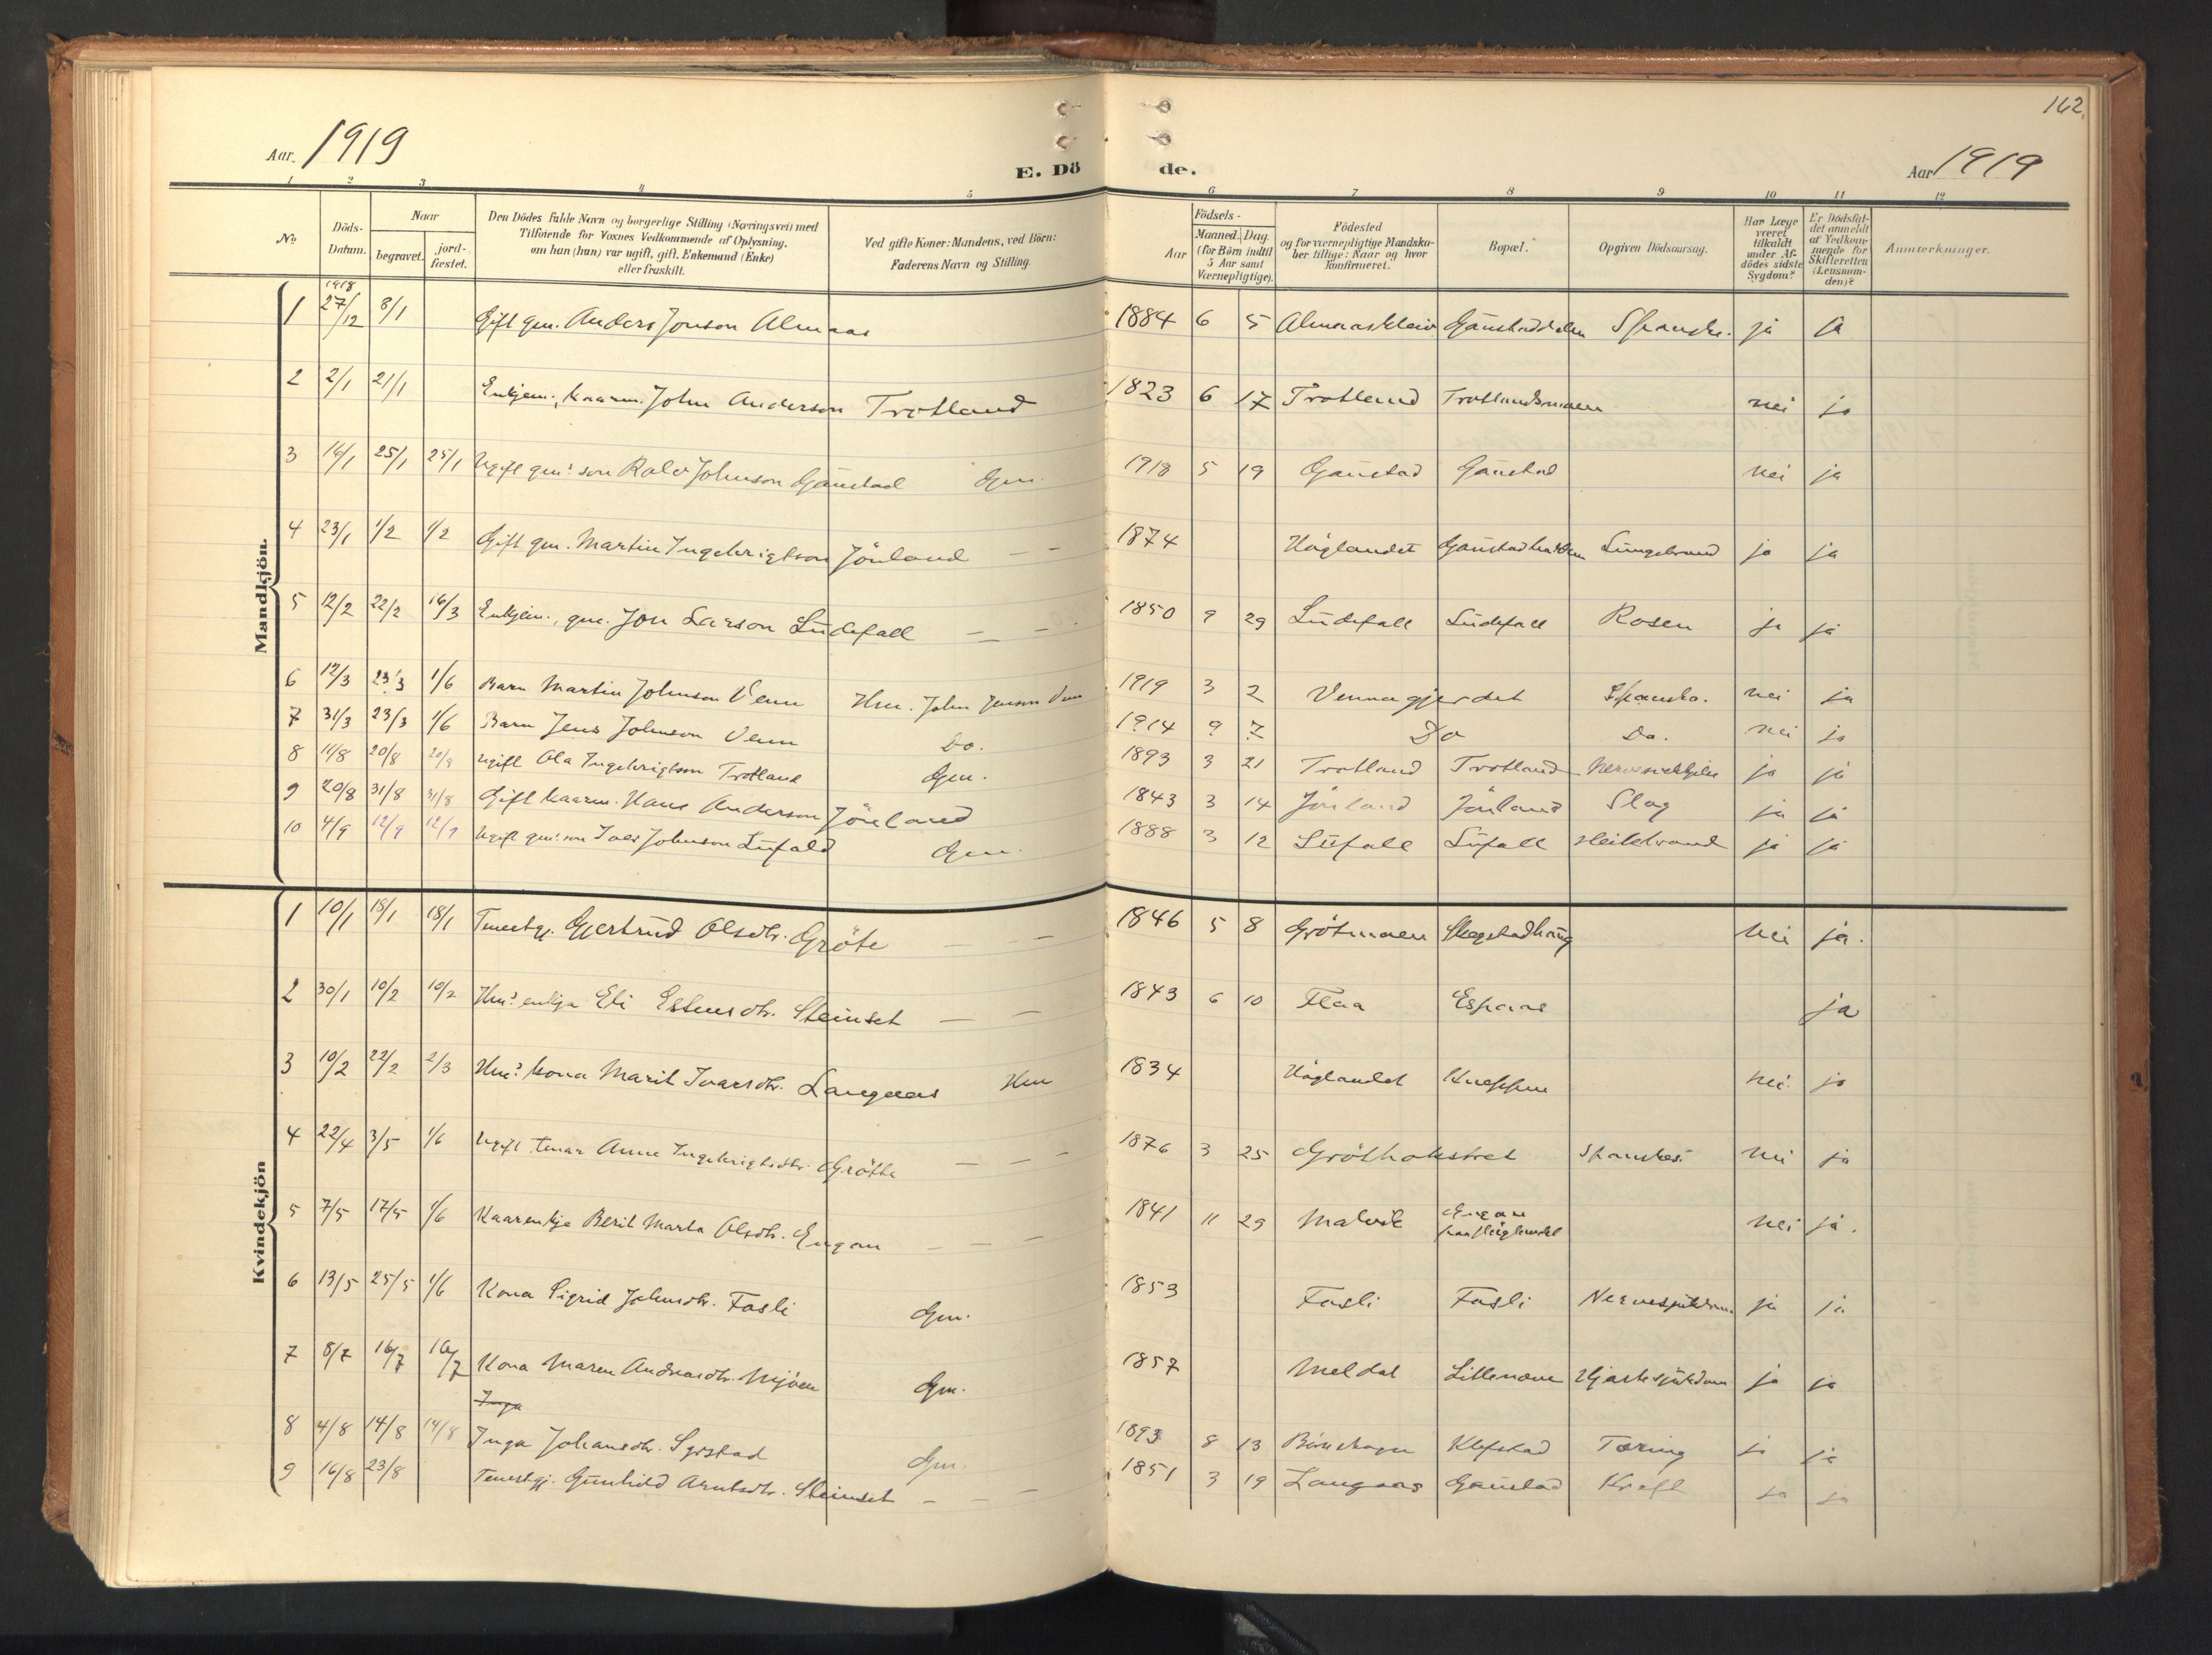 162.
Aar 1919
E. Dö
de.
Aar 1919
1 2 3 4 5 6 7 8 9 10 11 12
No
Döds-Datum.
Naar
begravet.
jord-fæstet.
Den Dödes fulde Navn og borgerlige Stilling (Næringsvei) med
Tilföiende for Voxnes Vedkommende af Oplysning,
om han (hun) var ugift, gift, Enkemand (Enke)
eller fraskilt.
Ved gifte Koner: Mandens, ved Börn:
Faderens Navn og Stilling.
Födsels-
Aar
Maaned. Dag
(for Börn indtil
5 Aar samt
Værnepligtige).
Födested
og for værnepligtige Mandska-
ber tillige: Naar og hvor
konfirmeret.
Bopæl.
Opgiven Dödsaarsag.
Har Læge
været
tilkaldt
under Af-
dödes sidste
Sygdom?
Er Dödsfal-
det anmeldt
af Vedkom-
mende for
Skifteretten
(Lensman-
den)?
Anmærkninger.
Mandkjön.
1918
1 27/12 8/1 Gift gm. Anders Jonson Almaas 1884 6 5 Almaaskleiv Gaustaddalen Spanske. ja ja
2 2/1 21/1 Enkjem., kaarm. John Anderson Trotland 1823 6 17 Trotland Trotlandsmoen nei ja
3 16/1 25/1 25/1 Ugift gm: son Johnson Gaustad Gm. 1918 5 19 Gaustad Gaustad nei ja
4 23/1 1/2 1/2 Gift gm. Martin Ingebrigtson Jönland — — 1874 Höglandet Lungebrand ja ja
5 12/2 22/2 16/3 Enkjem., gm. Jon Larson Ludefall — — 1850 9 29 Ludefall Ludefall Rosen ja ja
6 12/3 23/3 1/6 Barn Martin Johnson Venn Hm. John Jenson Venn 1919 3 2 Vennagjerdet Spansko. nei ja
7 31/3 23/3 1/6 Barn Jens Johnson Venn Do. 1914 9 7 Do Do. nei ja
8 11/8 20/8 20/8 ugift Ola Ingebrigtson Trotland Gm. 1893 3 21 Trotland Trotland ja ja
9 20/8 31/8 31/8 Gift kaarm. Hans Anderson Jönland 1843 3 14 Jönland Jönland Slag ja ja
10 4/9 12/9 12/9 Ugift gm: son Johnson Lufald Gm. 1888 3 12 Lufall Lufall ja ja
Kvindekjön
1 10/1 18/1 18/1 Tenestgj. Gjertrud Olsdtr. Gröte — — 1846 5 8 Grötmoen Skogstadhaug nei ja.
2 30/1 10/2 10/2 Hm: enkja Eli Estensdtr. Steinset — — 1843 6 10 Flaa Espaas ja
3 10/2 22/2 2/3 Hm: kona Marit Ivarsdtr. Langaas Hm 1834 Höglandet nei ja
4 22/4 3/5 1/6 Ugift tenar Anne Ingebrigtsdtr. Grötte — — — 1876 3 25 Spanskes: nei ja
5 7/5 17/5 1/6 Kaarenkje Berit Marta Olsdtr. Engan — — — 1841 11 29 Malvik Engan paa Höglandet nei ja.
6 13/5 25/5 1/6 Kona Sigrid Johnsdtr. Fasli Gm. 1853 Fasli Fasli ja ja
7 8/7 16/7 16/7 Kona Maren Andreasdtr. Mjöen Gm. 1857 Meldal Litlemoen Hjartesjukdom ja ja
Inga
8 4/8 14/8 14/8 Inga Johansdtr. Syrstad Gm. 1893 8 13 Klefstad Tæring ja ja
9 16/8 23/8 Tenestgj. Gunhild Arntsdtr. Steinset — — — 1851 3 19 Langaas Gaustad Kreft ja ja